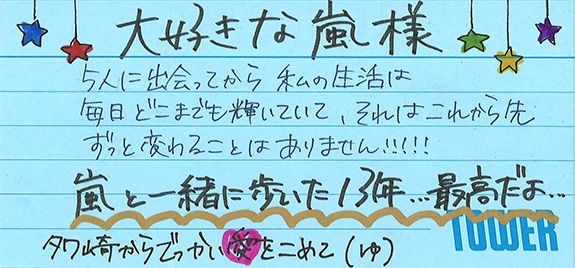 大好きな嵐様
5人に出会ってから 私の生活は
毎日どこまでも輝いていて、それはこれから先
ずっと変わることはありません!!!!!
嵐と一緒に歩いた13年…最高だよ…
TOWER
タワ崎からでっかい愛をこめて(ゆ)